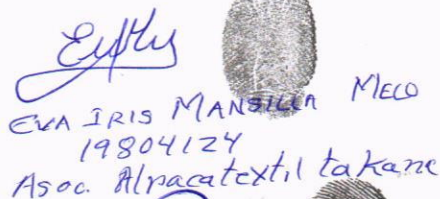 EVA IRIS MANSILLA MELO
19804124
Asoc. Alpacatextil takane